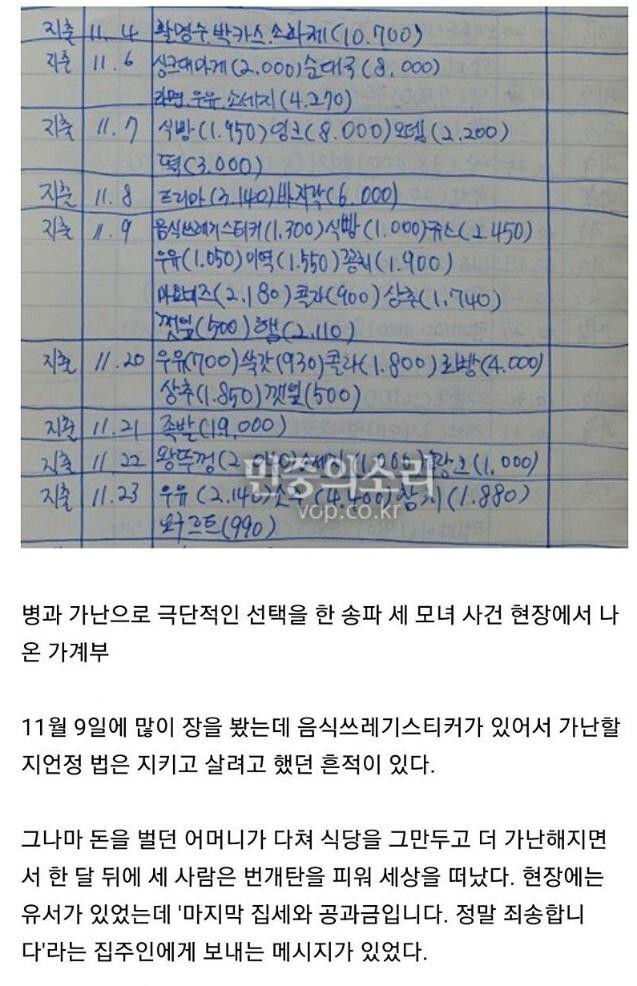 지출 11. 4 활명수 박카스. 소화제 (10.700)
지출 11. 6 싱크대마개 (2.000) 순대국 (8.000)
라면. 우유. 소세지 (4.270)
지출 11. 7 식빵 (1.950) 잉크 (8.000) 오뎅 (2.200)
떡 (3.000)
지출 11. 8 프리마 (3.140) 바지락 (6.000)
지출 11. 9 음식쓰레기스티커 (1.300) 식빵 (1.000) 쥬스 (2.450)
우유 (1.050) 미역 (1.550) 꽁치 (1.900)
마요네즈 (2.180) 콜라 (900) 상추 (1.740)
깻잎 (500) 햄 (2.110)
지출 11. 20 우유 (700) 쑥갓 (930) 콜라 (1.800) (4.000)
상추 (1.850) 깻잎 (500)
지출 11. 21 족발 (19.000)
지출 11 22 왕뚜껑 (2.000) 소세지 (1.000) (1.000)
지출 11. 23 우유 (2.140) (4.400) 참치 (1.880)
요구르트 (990)
민중의소리
vop.co.kr
병과 가난으로 극단적인 선택을 한 송파 세 모녀 사건 현장에서 나
온 가계부
11월 9일에 많이 장을 봤는데 음식쓰레기스티커가 있어서 가난할
지언정 법은 지키고 살려고 했던 흔적이 있다.
그나마 돈을 벌던 어머니가 다쳐 식당을 그만두고 더 가난해지면
서 한 달 뒤에 세 사람은 번개탄을 피워 세상을 떠났다. 현장에는
유서가 있었는데 '마지막 집세와 공과금입니다. 정말 죄송합니
다'라는 집주인에게 보내는 메시지가 있었다.